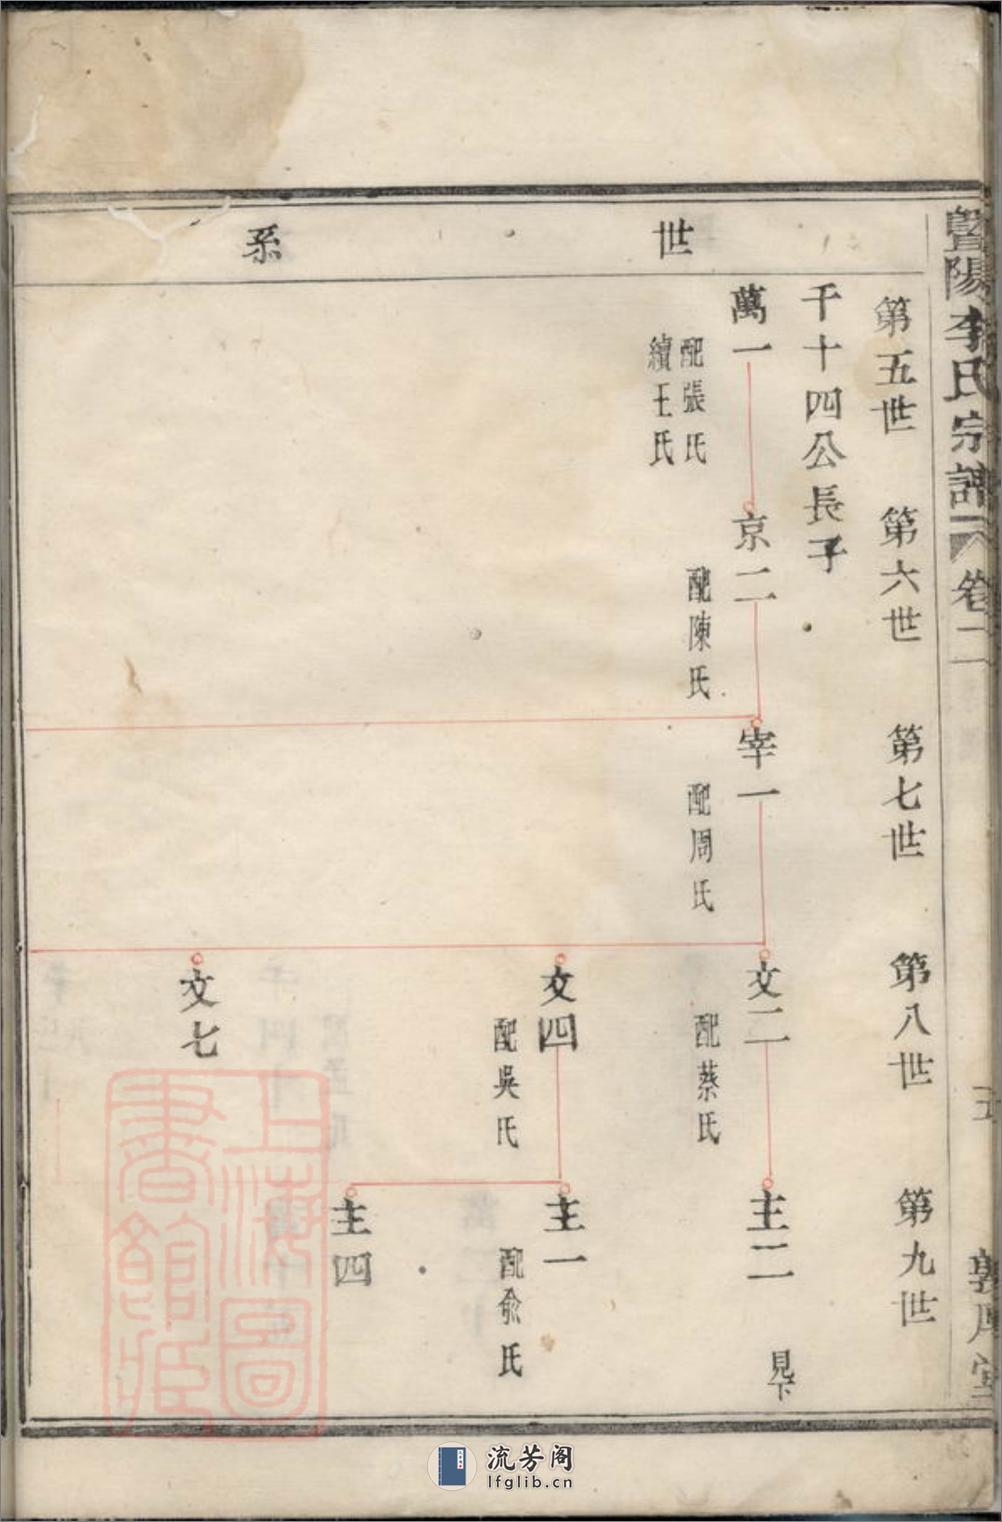 暨陽李氏宗譜
卷二
五
敦厚堂
世
系
第五世
第六世
第七世
第八世
第九世
千十四公長子
萬一
配張氏
續王氏
京二
配陳氏
宰一
配周氏
文二
配蔡氏
主二
見下
文四
配吳氏
主一
配俞氏
主四
文七
上海圖
書館藏
流芳阁
lfglib.cn